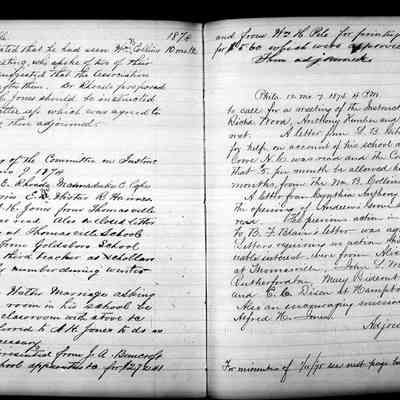 1874
stated that he had seen Wm Collins 10 mo 12
, who spoke of her of their
suggested that the association
them. Dr Rhoads proposed
Jones should be instructed
matter up which was agreed to
then adjourned.
of the Committee on Instruc
9 1874
E. Rhoads Marmaduke C. Cope
C. W Wister R. Haines
H. Jones from Thomasville
was read. Also enclosed letter
at Thomasville Schools
from Goldsboro School
third teacher as Scholars
number during winter
Walter Marriage asking
room in his school be
classroom with stove &c
referred to A H. Jones to do as
necessary
presented from J. A. Bancroft
School apparatus &c for $
and from Wm H. Pile for printing
for $5.60 which were approved
Then adjourned
Phila 12 mo 7. 1874 4 P.M.
to care for a meeting of the Instruct
Richd Wood, Anthony Kimber and
met. A letter from L. B. 
for help on account of his school a
N.C. was read and the Co
that 5. per month be allowed h
months, from the Wm B. Collins
A letter from Cynthia 
the opening of Andrews 
read. The previous action in
to B. F. Blair's letter was ag
Letters requiring no action
received from Alice
at Thomasville. John L. W
Rutherfordton. Mary 
and E. C. Dixon at Hampton
Also an encouraging
Alfred H. Jones.
Adjou
For minutes of 1/11/75 see next page but